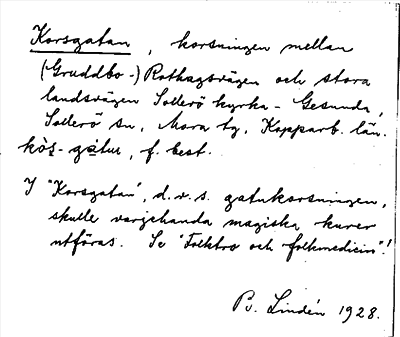 Korsgatan, korsningen mellan
(Gruddbo-) Rothagsvägen och stora
landsvägen Sollerö kyrka - Gesunda,
Sollerö sn, Mora tg, Kopparb. län.
kòs̠-gàtun, f. best.
I "Korsgatan", d.v.s. gatukorsningen,
skulle varjehanda magiska kurer
utföras. Se "Folktro och folkmedicin"!
Bj. Lindén 1928.